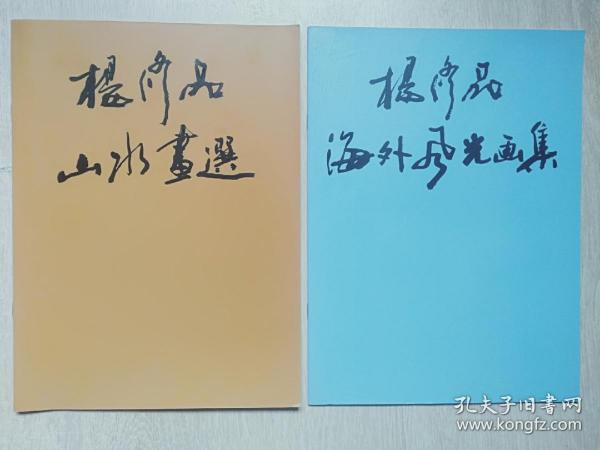 楊修品
山水畫選
楊修品
海外风光画集
孔夫子旧书网
www.kongfz.com